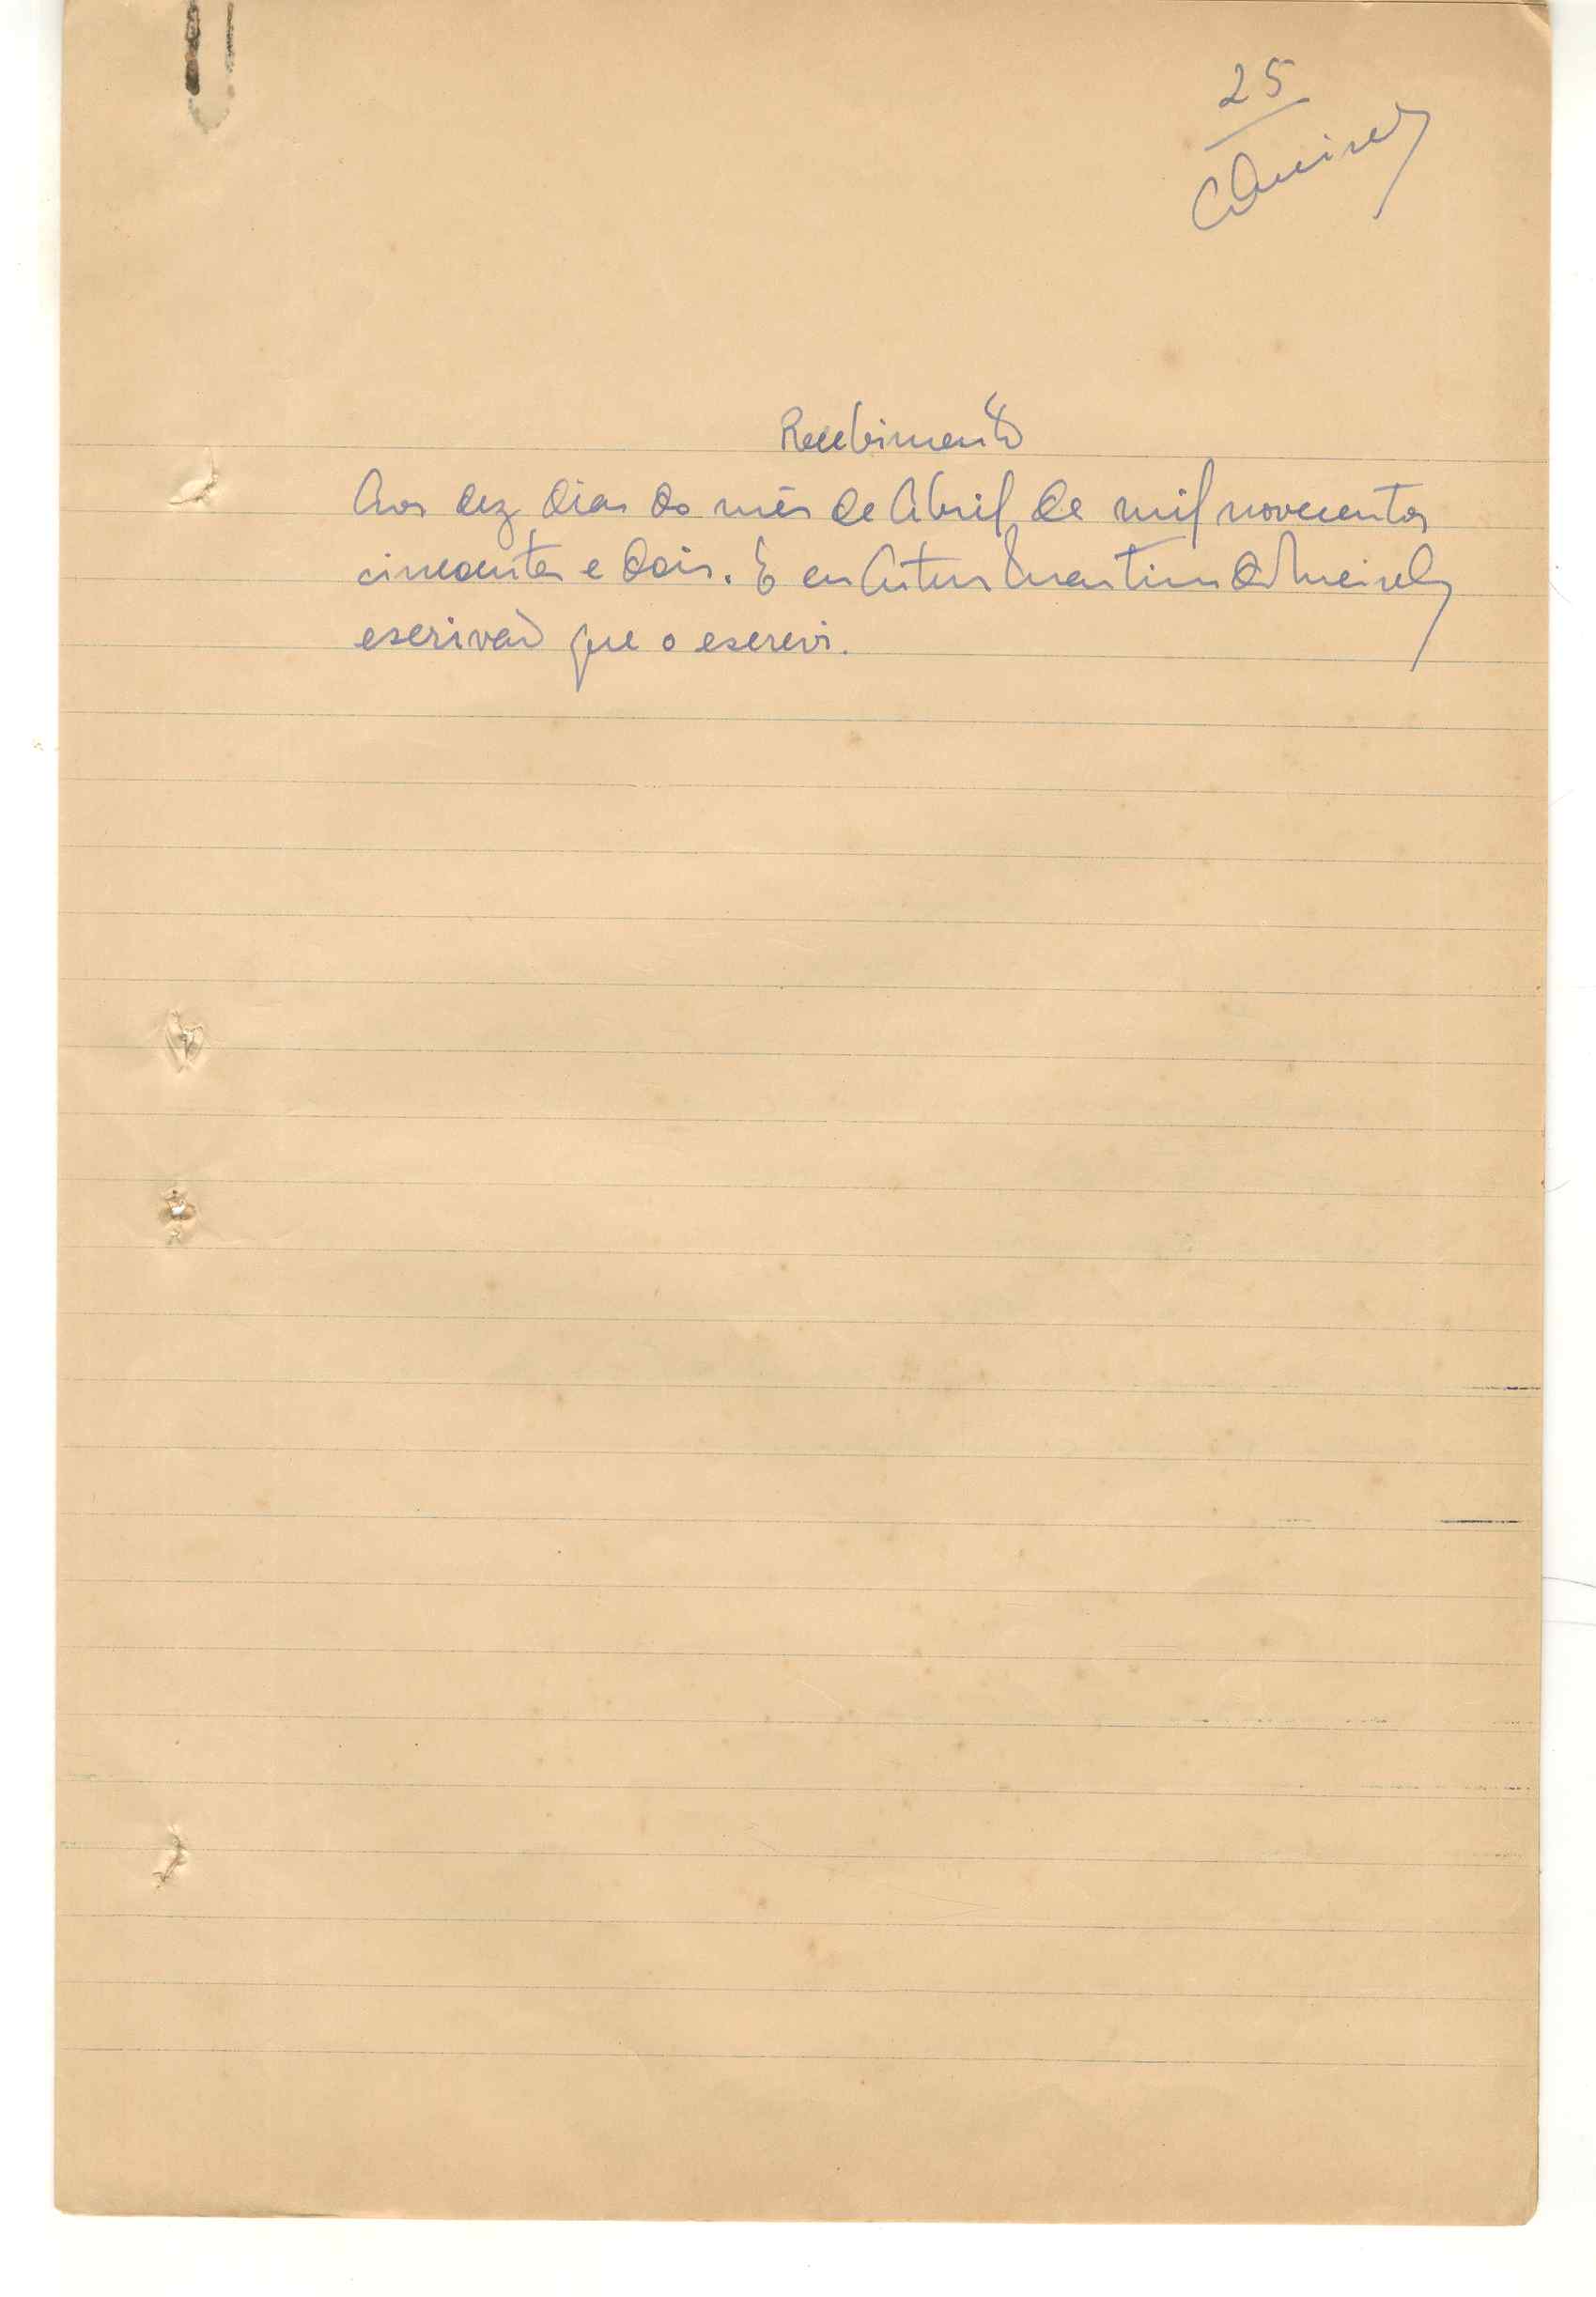 25
Recebimento
Aos dez dias do mês de Abril de mil novecentos
cincoenta e dois. E eu Artur Martins
escrivaõ que o escrevi.